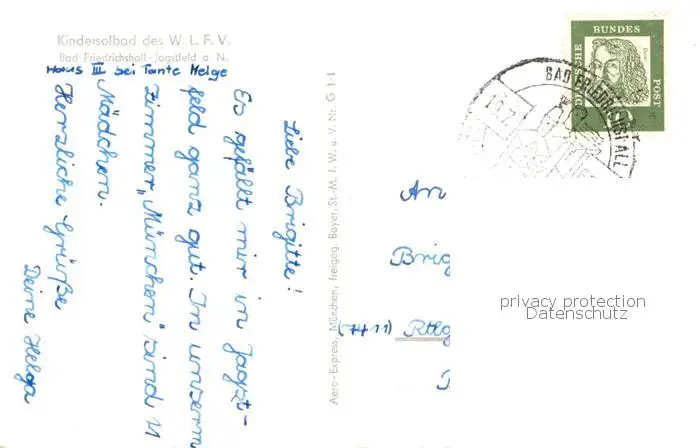 Kindersolbad des W. L. F. V.
Bad Friedrichshall-Jagstfeld a N.
Haus III bei Tante Helge
Liebe Brigitte!
Es gefällt mir in Jagst-
feld ganz gut. In unserm
Zimmer „München" sind 11
Mädchen.
Herzliche Grüße
Deine Helga
Aero-Express, München, freigeg. Bayer. St.-M. f. W. u. V. Nr. G 1-1
DEUTSCHE BUNDES POST
BAD FRIEDRICHSHALL
An
Brig
(7411) Rttg
privacy protection
Datenschutz